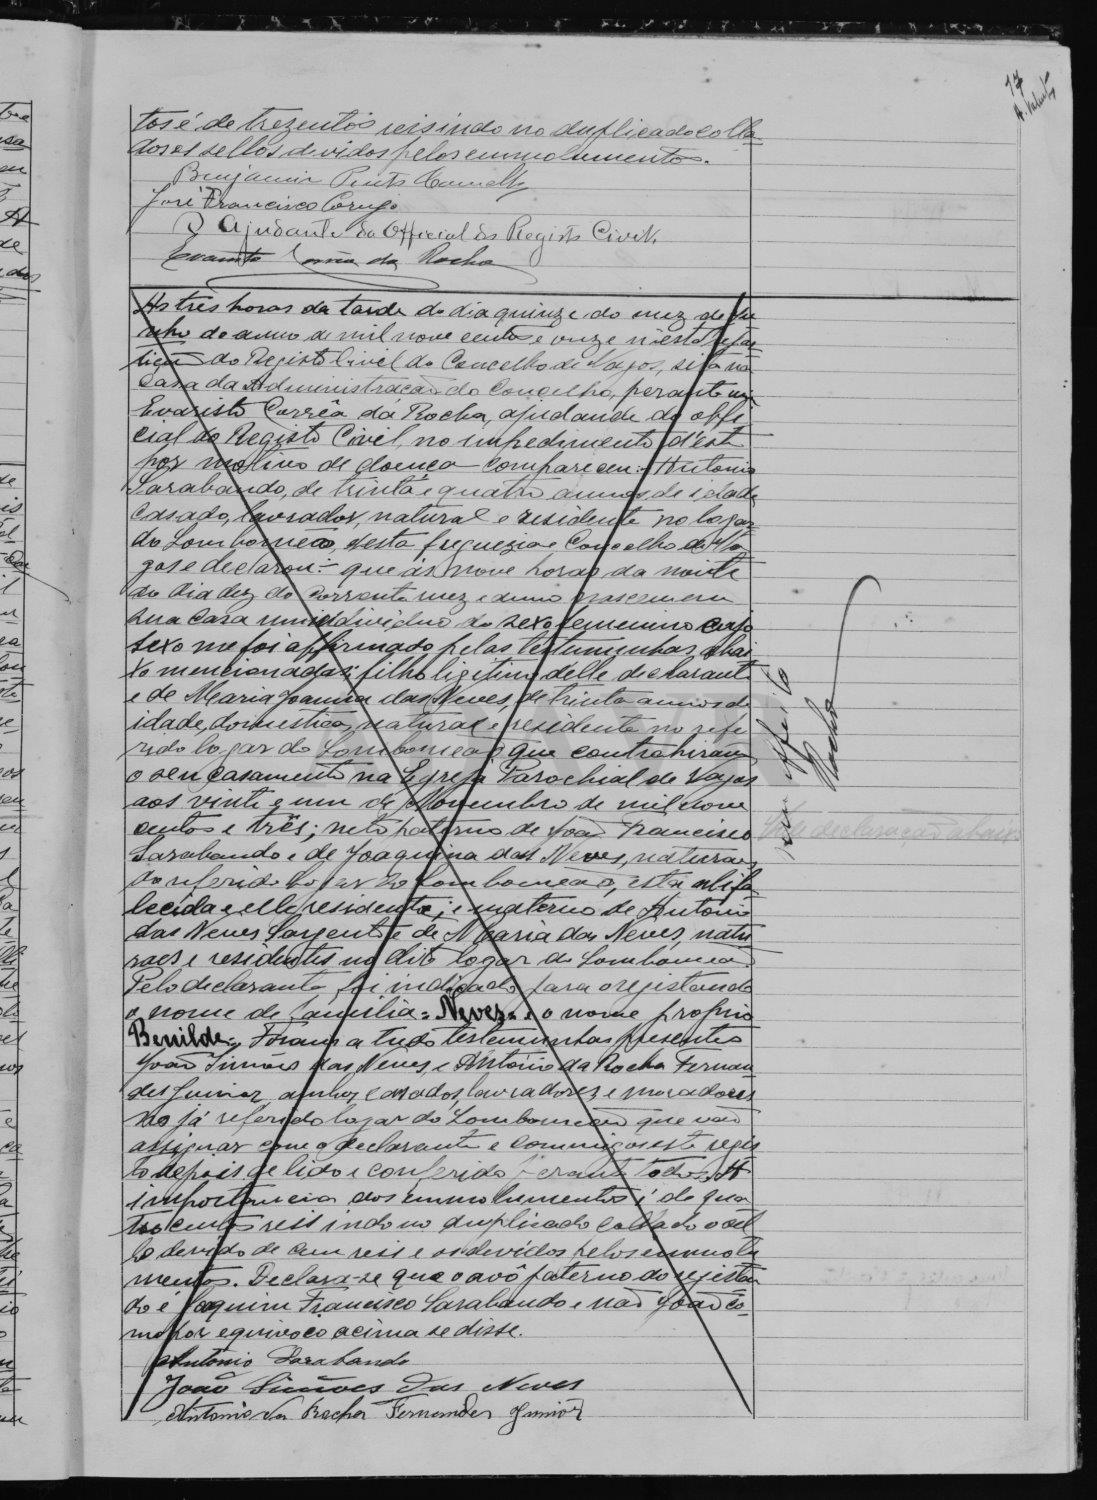 17
tos é de trezentos reis indo no duplicado colla-
dos os sellos devidos pelos emmolumentos.
Benjamim Pinto Camello
José Francisco
O Ajudante do Official do Registo Civil,
Evaristo Corrêa da Rocha
As tres horas da tarde do dia quinze do mez de Ju-
nho do anno de mil nove centos e onze n'esta repar-
tição do Registo Civil do Concelho de Vagos, sita na
Casa da Administração do Concelho, perante mim
Evaristo Corrêa da Rocha, ajudante do offi-
cial do Registo Civil, no impedimento d'este
por motivo de doença compareceu: Antonio
Sarabando, de trinta e quatro annos de idade
casado, lavrador, natural e residente no logar
do Lombomeão, desta freguezia e Concelho de Va-
gos e declarou: que ás nove horas da noite
do dia dez do corrente mez e anno nasceu em
sua casa um individuo do sexo femenino cujo
sexo me foi affirmado pelas testemunhas abai-
xo mencionadas; filho ligitimo delle declarante
e de Maria Joanna das Neves, de trinta annos de
idade, domestica, natural e residente no refe-
rido logar do Lombomeão que contrahiram
o seu casamento na Egreja Parochial de Vagos
aos vinte e um de Novembro de mil nove
centos e três; neto paterno de João Francisco
Sarabando e de Joaquina das Neves, naturaes
do referido logar do Lombomeão, esta já fa-
lecida e elle residente; e materno de Antonio
das Neves Sargento e de Maria das Neves, natu-
raes e residentes no dito logar do Lombomeão.
Pelo declarante foi indicado para o registando
o nome de familia = Neves = e o nome proprio
Benilde. Foram a tudo testemunhas presentes
João Simões das Neves e Antonio da Rocha Fernan-
des Junior, ambos casados, lavradores e moradores
no já referido logar do Lombomeão que vão
assignar com o declarante e commigo este regis-
to depois de lido e conferido perante todos. A
importancia dos emmolumentos é de qua-
tro centos reis indo no duplicado collado o sel-
lo devido de cem reis e os devidos pelos emmolu-
mentos. Declara-se que o avô paterno do registan-
do é Joaquim Francisco Sarabando e não João co-
mo por equivoco acima se disse.
Antonio Sarabando
João Simões das Neves
Antonio da Rocha Fernandes Junior
sem effeito
Rocha
Vide declaração abaixo